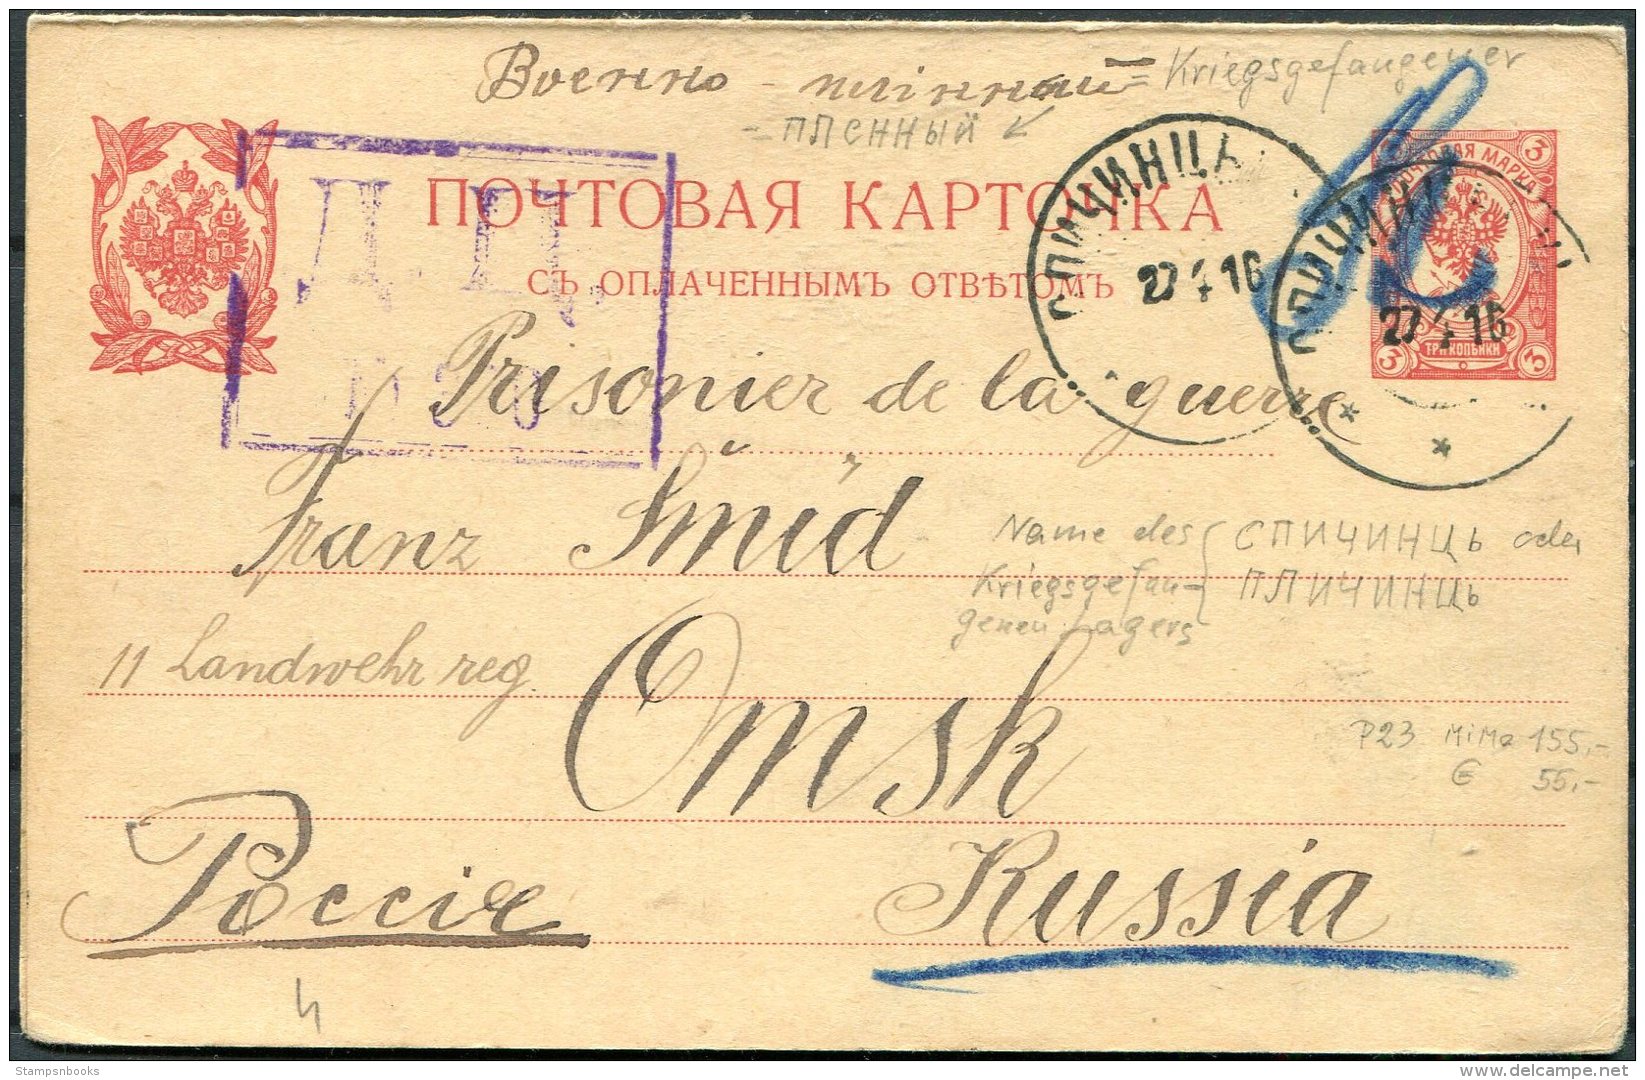 Военно - плiнный = Kriegsgefangener
= ПЛЕННЫЙ
ПОЧТОВАЯ КАРТОЧКА
СЪ ОПЛАЧЕННЫМЪ ОТВѢТОМЪ
Д. Ц.
ПОЧТОВАЯ МАРКА
3 3
3 ТРИ КОПѢЙКИ 3
СПИЧИНЦЫ
27 4 16
СПИЧИНЦЫ
27 4 16
Prisonier de la guerre
Franz Šmíd
Name des Kriegsgefangenen Lagers { СПИЧИНЦЬ oder
ПЛИЧИНЦЬ
11 Landwehr reg.
Omsk
P23 MiMa 155,-
€ 55,-
Россiе
Russia
Stampsnbooks
delcampe.net